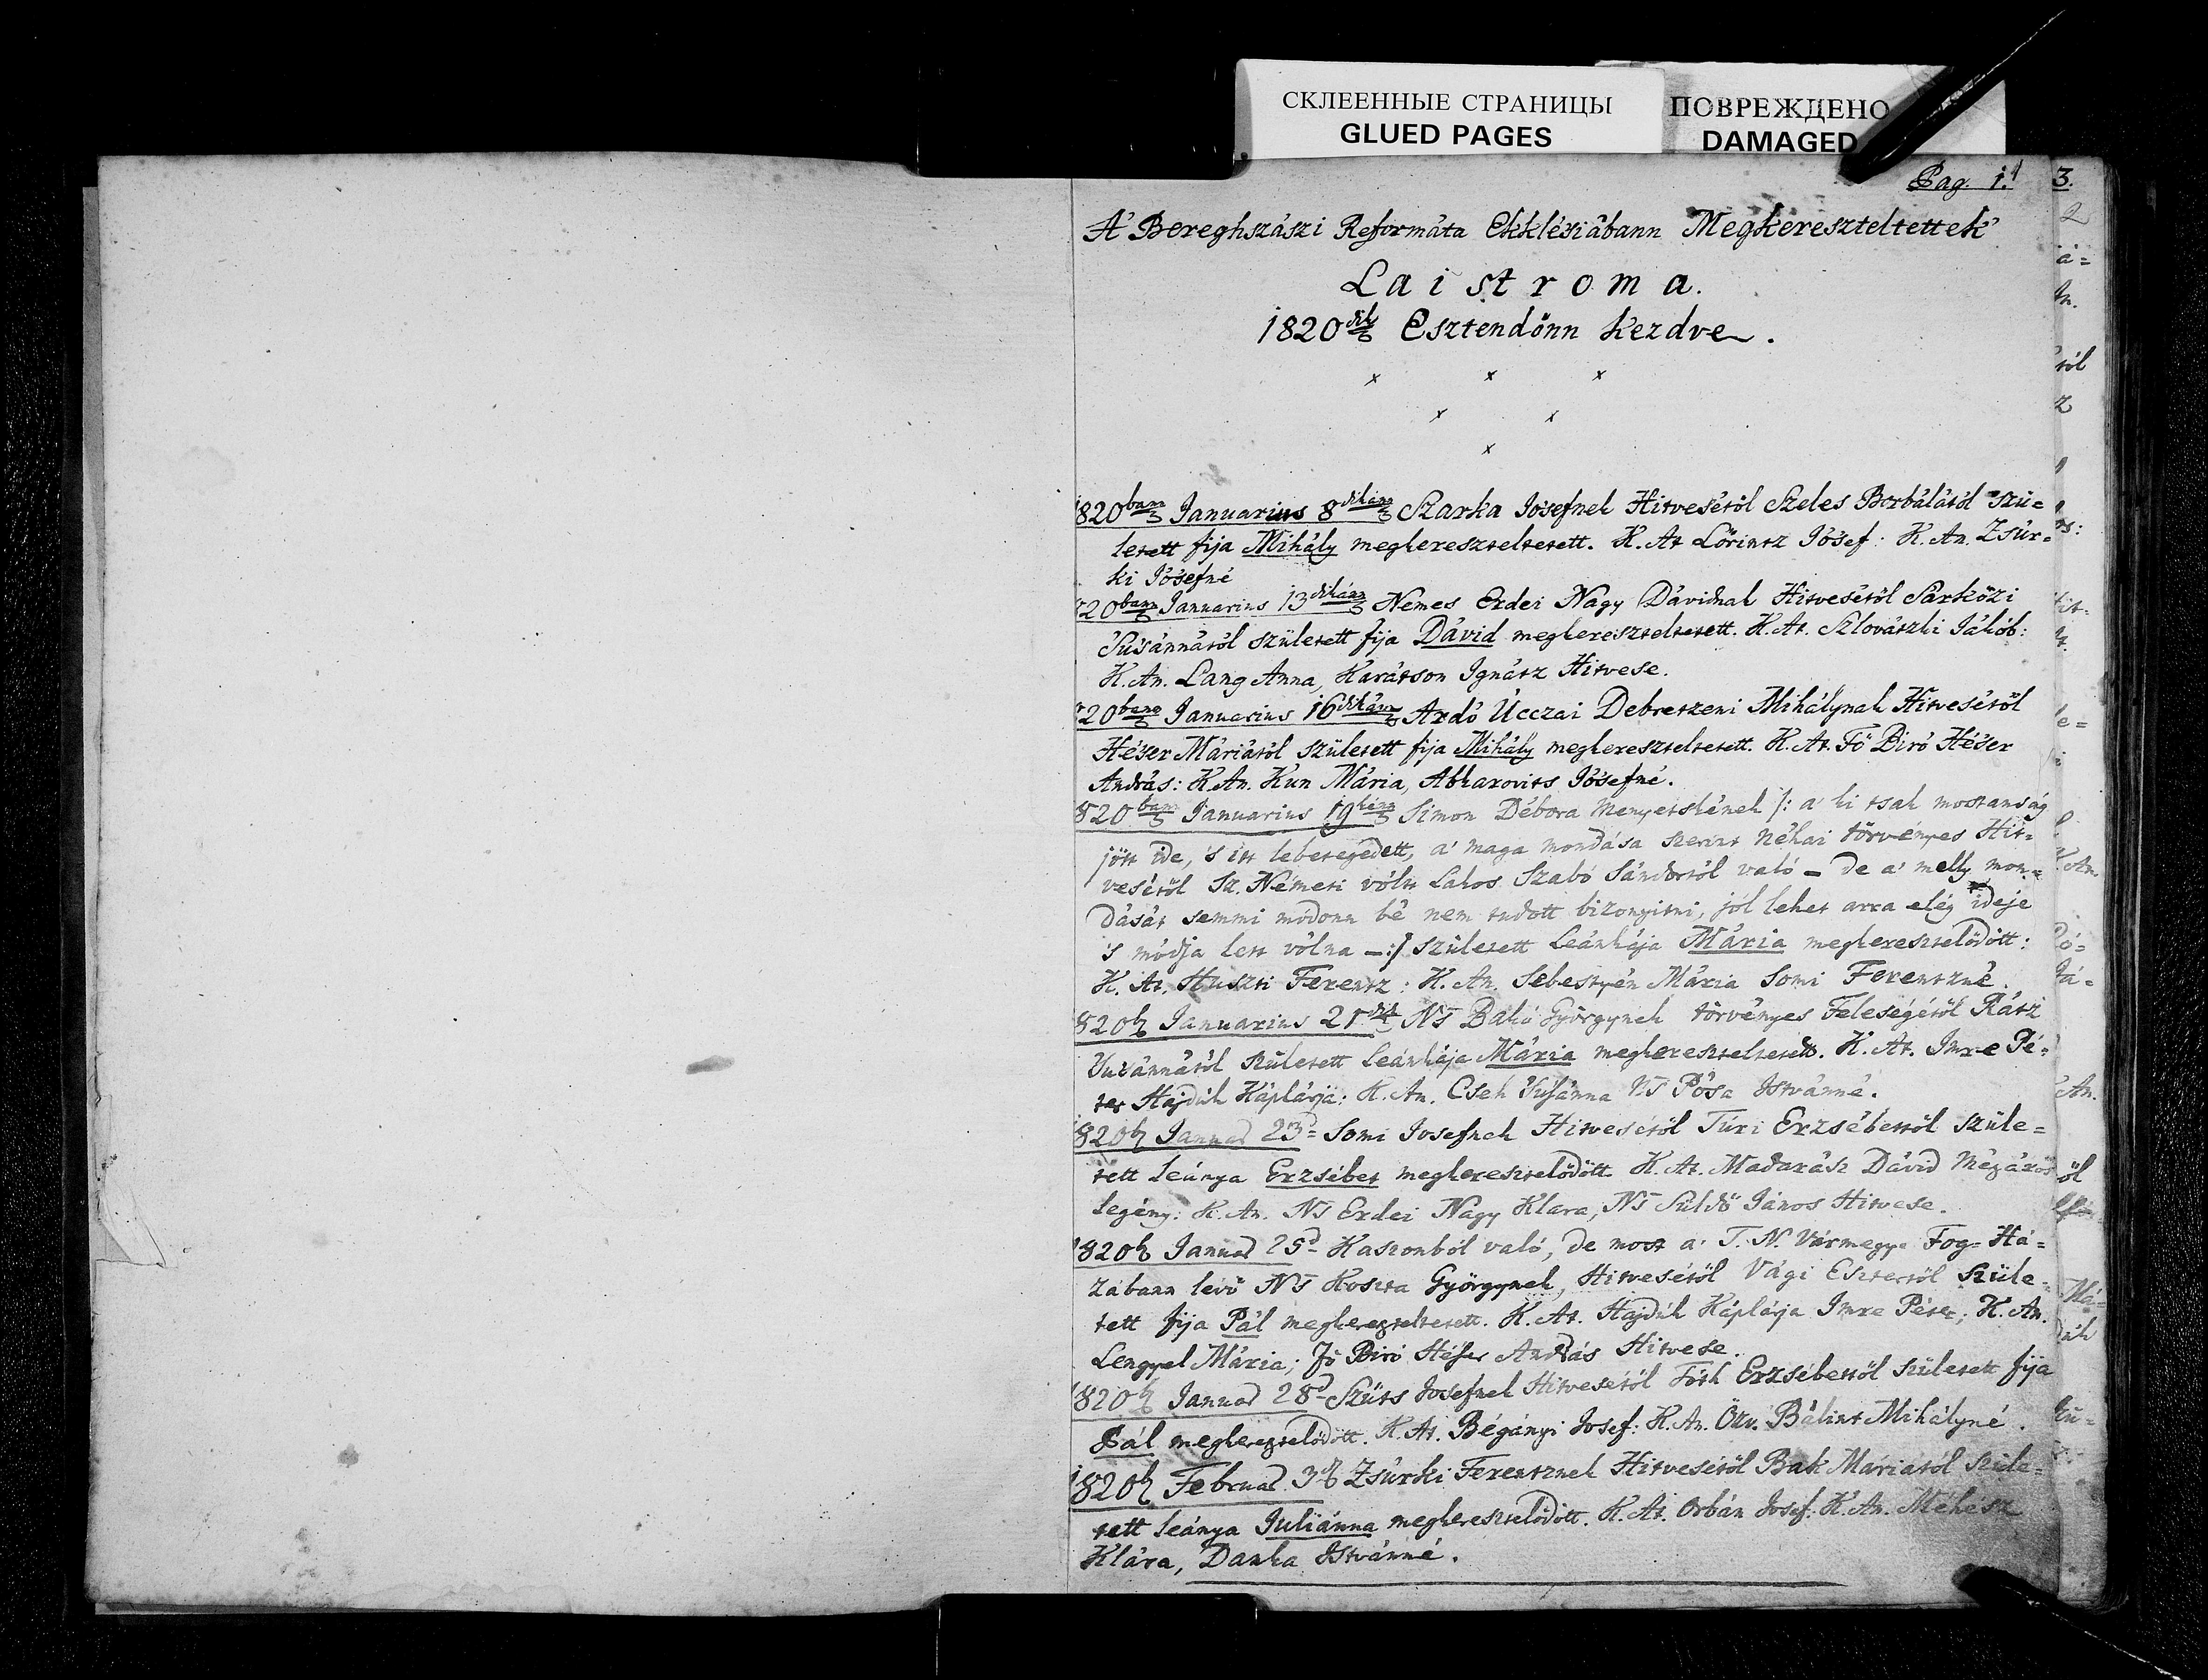 СКЛЕЕННЫЕ СТРАНИЦЫ
GLUED PAGES
ПОВРЕЖДЕНО
DAMAGED
Pag. 1.
3.
A' Bereghszászi Reformáta Ekklésiábann Megkereszteltettek
Laistroma.
1820dik Esztendőnn kezdve.
1820bann Januarius 8dikánn Szarka Jósefnek Hitvesétől Szeles Borbálától szü=
letett fija Mihály megkereszteltetett. K. At Lőrintz Jósef: K. An. Zsúr=
ki Jósefné
820bann Januarius 13dikánn Nemes Erdei Nagy Dávidnak Hitvesétől Sarközi
Susánnától született fija Dávid megkereszteltetett. K. At. Szlovátzki Jákób:
K. An. Lang Anna, Karátson Ignátz Hitvese.
820bann Januarius 16dikánn Ardó Úcczai Debretzeni Mihálynak Hitvesétől
Héser Máriától született fija Mihály megkereszteltetett. K. At. Fő Biró Héser
András: K. An. Kun Mária, Abkarovits Jósefné.
820bann Januarius 19kénn Simon Débora Menyetskének /: a' ki tsak mostanság
jött ide, 's itt lebetegedett, a' maga mondása szerint néhai törvényes Hit=
vesétől Sz. Németi vólt Lakos Szabó Sándortól való – de a' melly mon=
dását semmi módonn bé nem tudott bizonyitni, jól lehet arra elég ideje
's módja lett vólna –:/ született Leánkája Mária megkeresztelődött:
K. At. Huszti Ferentz: K. An. Sebestyén Mária Somi Ferentzné.
820b Januarius 21dik Ns Bakó Györgynek törvényes Feleségétől Rátz
Susánnától született Leánkája Mária megkereszteltetett. K. At. Imre Pé=
ter Hajdúk Káplárja: K. An. Cseh Susánna Ns Pósa Istvánné.
820b Januar 23d Somi Josefnek Hitvesétől Túri Erzsébettől szüle=
tett leánya Erzsébet megkeresztelődött K. At. Madarász Dávid Mézáros
legény: K. An. Ns Erdei Nagy Klara, Ns Süldő János Hitvese.
1820b Januar 25d Kaszonból való, de most a' T. N. Vármegye Fog=Há=
zábann lévő Ns Koszta Györgynek, Hitvesétől Vági Esztertől szüle=
tett fija Pál megkereszteltetett. K. At. Hajdúk Káplárja Imre Péter; K. An.
Lengyel Mária; Fő Biró Héser András Hitvese.
1820b Januar 28d Szűts Josefnek Hitvesétől Tóth Erzsébettől született fija
Pál megkeresztelődött. K. At. Bégányi Josef: K. An. Özv. Bálint Mihályné.
1820b Februar 3d Zsúrki Ferentznek Hitvesétől Bak Mariától szüle=
tett leánya Juliánna megkeresztelődött. K. At. Orbán Josef: K. An. Méhész
Klára, Danka Istvánné.